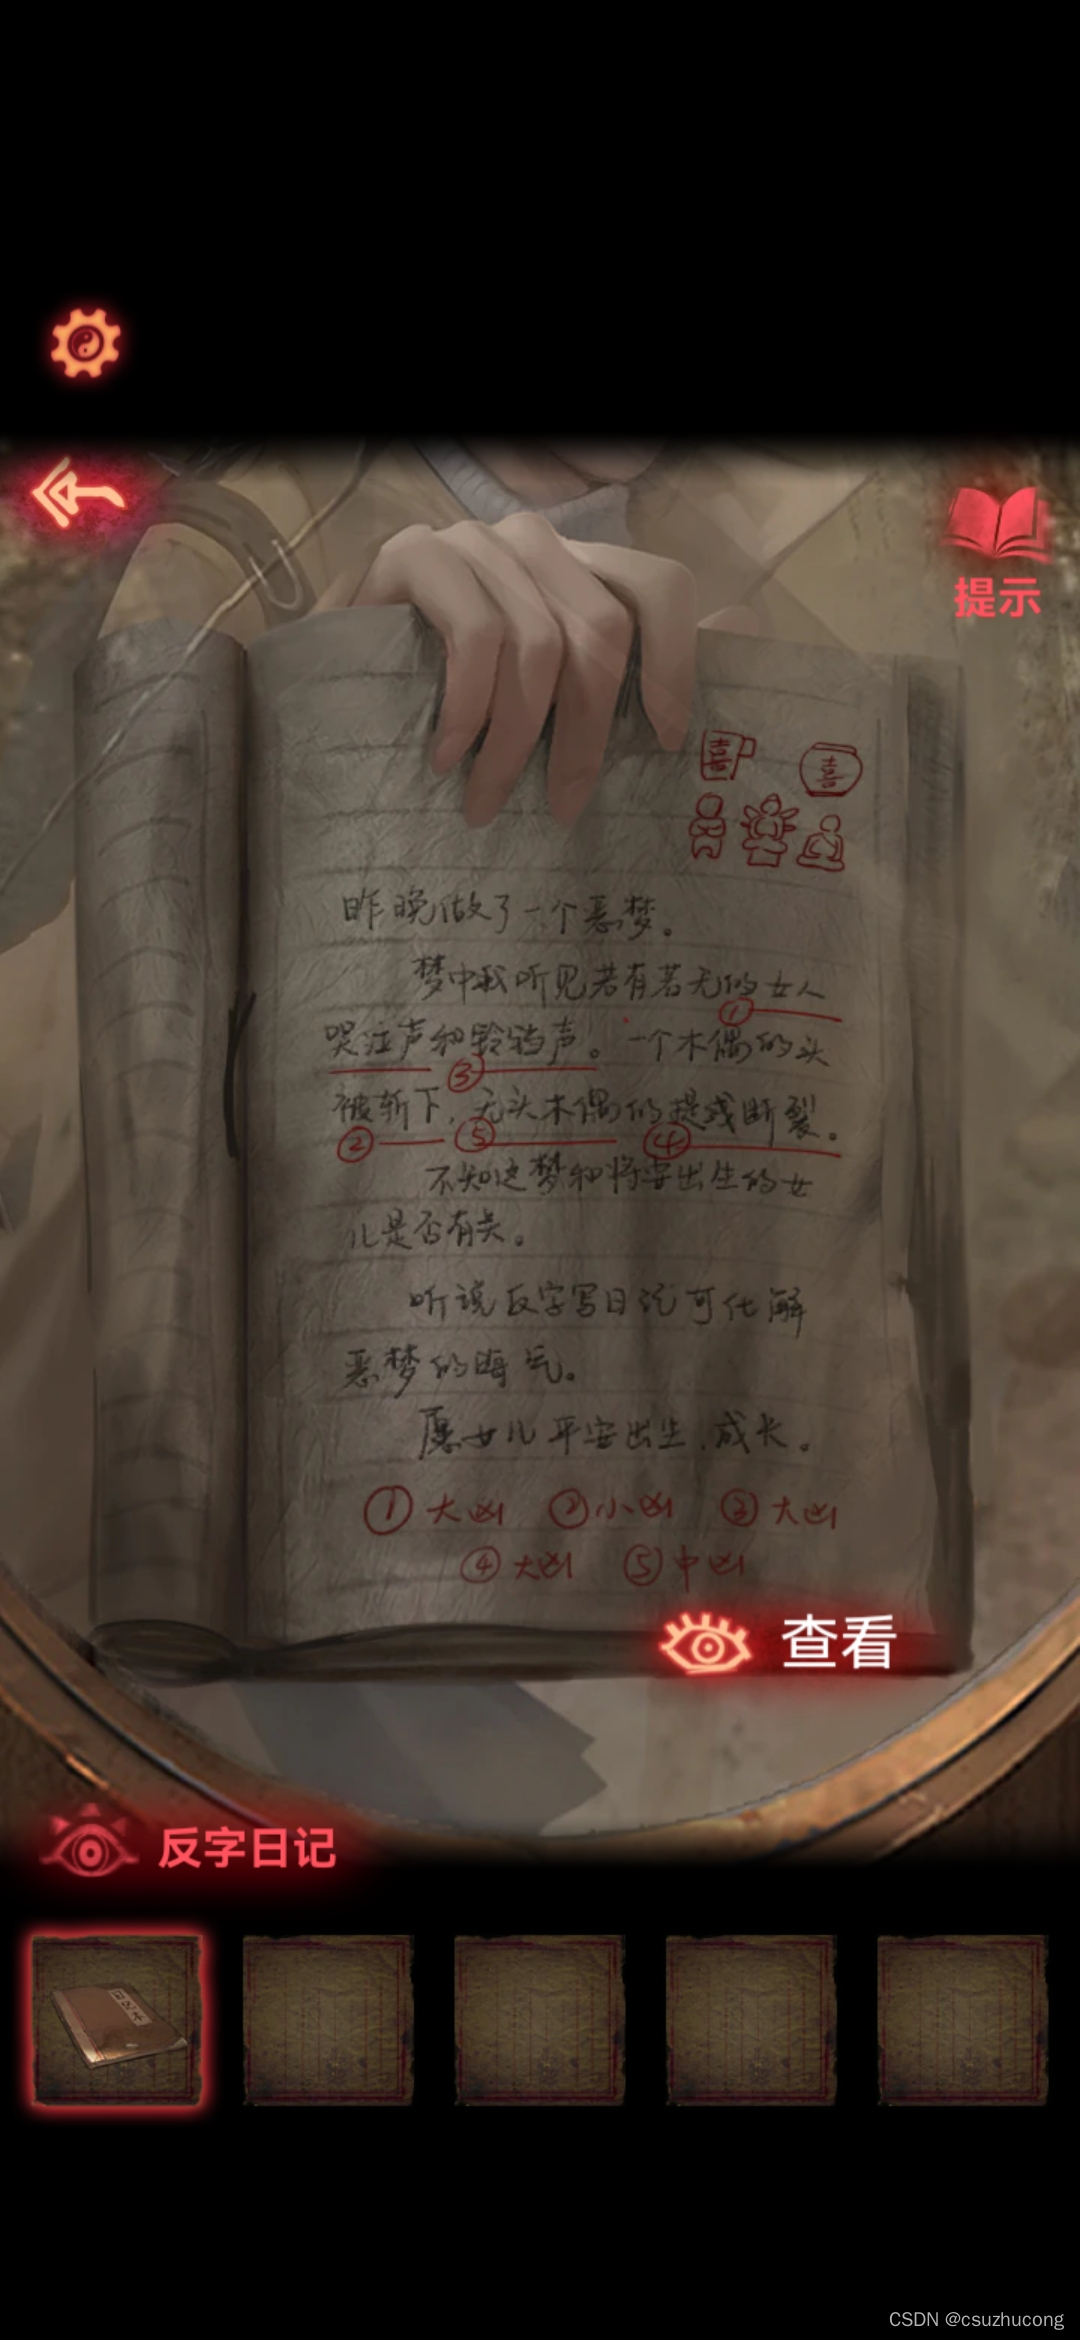 提示
喜 喜
昨晚做了一个恶梦。
梦中我听见若有若无的女人
①
哭泣声和铃铛声。一个木偶的头
③
被斩下，无头木偶的提线断裂。
② ⑤ ④
不知这梦和将要出生的女
儿是否有关。
听说反字写日记可化解
恶梦的晦气。
愿女儿平安出生，成长。
①大凶 ②小凶 ③大凶
④大凶 ⑤中凶
查看
反字日记
CSDN @csuzhucong